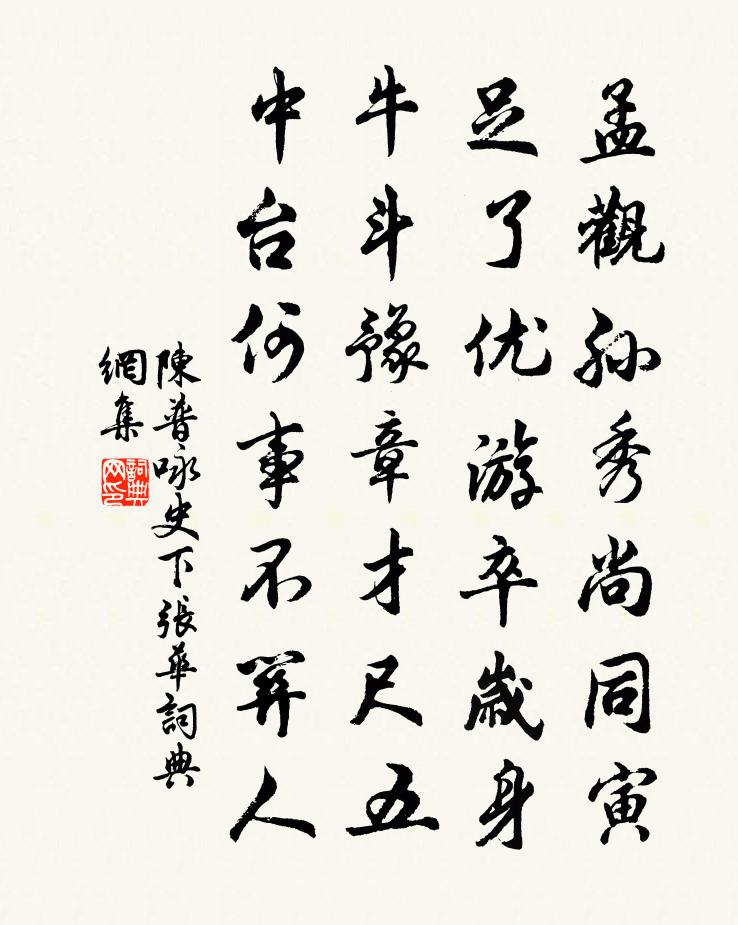 孟觀孙秀尚同寅
足了优游卒歲身
牛斗豫章才尺五
中台何事不算人
陳普咏史下張華詞典
網集
詞典
网印